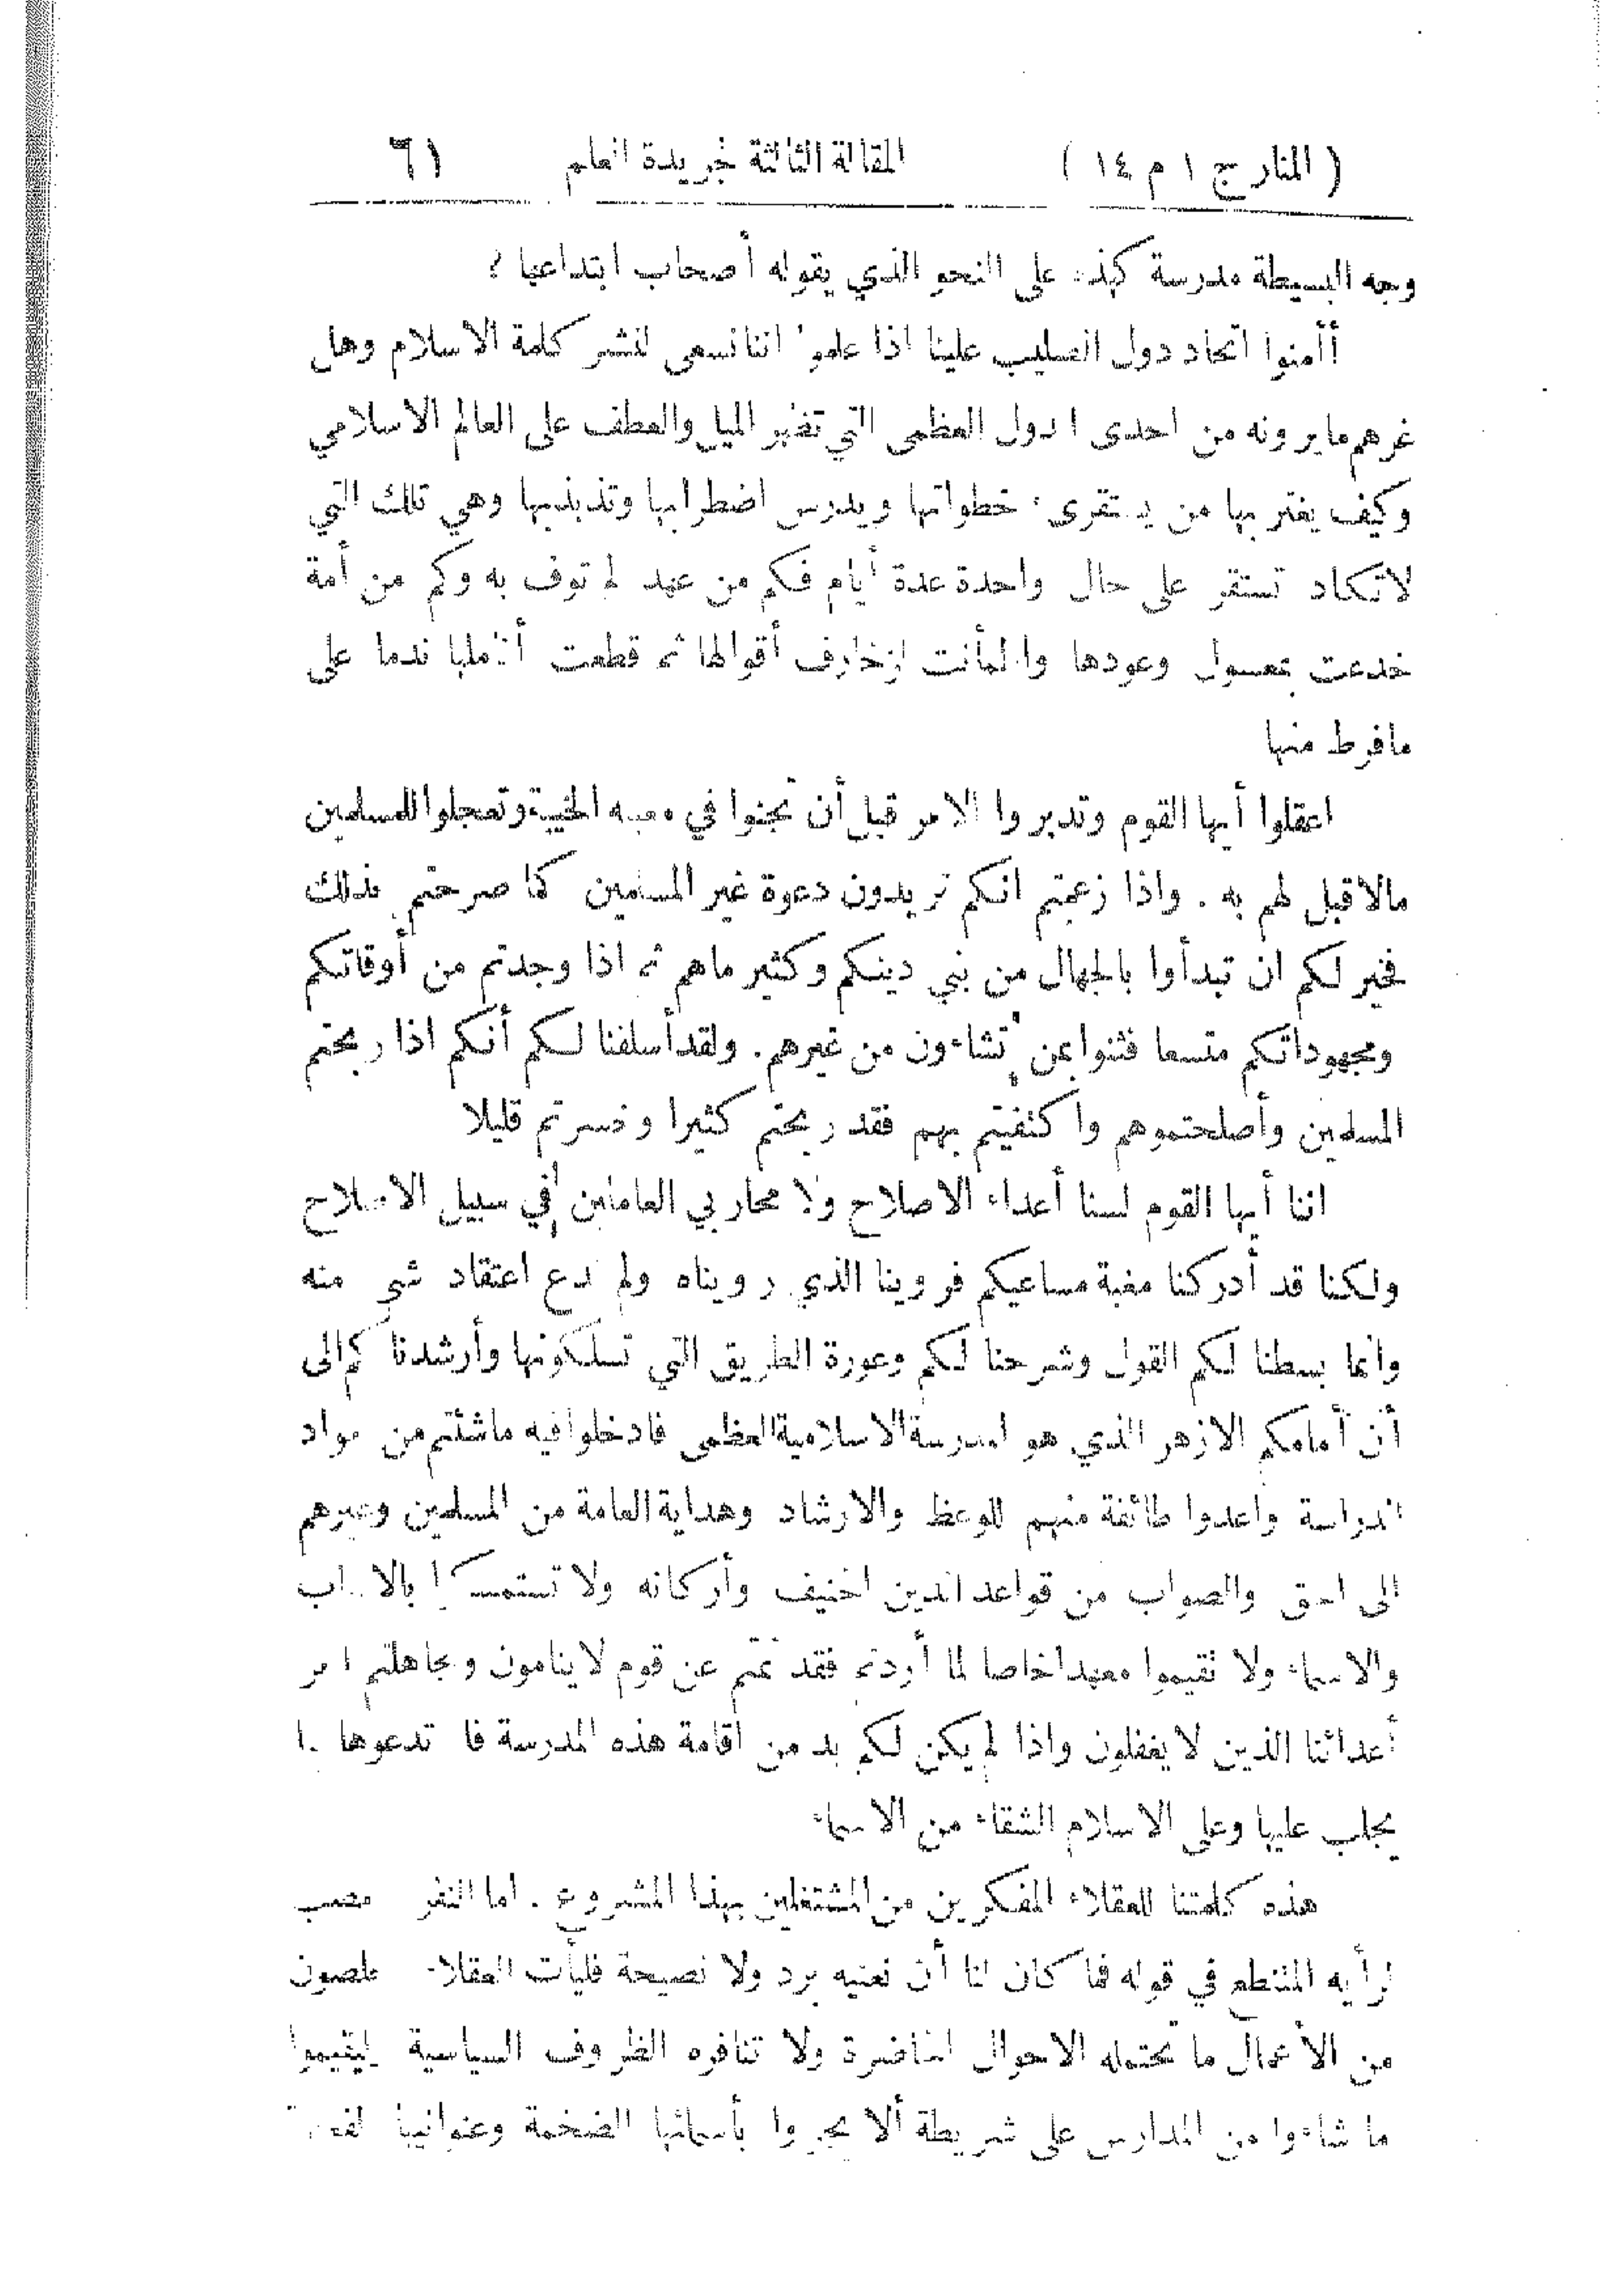 ( المنار ج ١ م ١٤ ) المقالة الثالثة لجريدة العلم ٦١
وجه البسيطة مدرسة كهذه على النحو الذي يقوله أصحاب ابتداعها ؟
أأمنوا اتحاد دول الصليب علينا اذا علموا اننا نسعى لنشر كلمة الاسلام وهل
غرهم مايرونه من احدى الدول العظمى التي تظهر الميل والعطف على العالم الاسلامي
وكيف يغتر بها من يستقرىء خطواتها ويدرس اضطرابها وتذبذبها وهي تلك التي
لاتكاد تستقر على حال واحدة عدة أيام فكم من عهد لم توف به وكم من أمة
خدعت بمعسول وعودها واطمأنت لزخارف أقوالها ثم قطعت أناملها ندما على
مافرط منها
اعقلوا أيها القوم وتدبروا الامر قبل أن تجنوا في مغبه الخيبة وتعجلوا للمسلمين
مالا قبل لهم به . واذا زعمتم انكم تريدون دعوة غير المسلمين كما صرحتم بذلك
فخير لكم ان تبدأوا بالجهال من بني دينكم وكثير ماهم ثم اذا وجدتم من أوقاتكم
ومجهوداتكم متسعا فثنوا بمن تشاءون من غيرهم . ولقد أسلفنا لكم أنكم اذا ربحتم
المسلمين وأصلحتموهم واكتفيتم بهم فقد ربحتم كثيرا وخسرتم قليلا
اننا أيها القوم لسنا أعداء الاصلاح ولا محاربي العاملين في سبيل الاصلاح
ولكنا قد أدركنا مغبة مساعيكم فروينا الذي رويناه ولم ندع اعتقاد شيء منه
وانما بسطنا لكم القول وشرحنا لكم وعورة الطريق التي تسلكونها وأرشدناكم الى
أن أمامكم الازهر الذي هو المدرسة الاسلامية العظمى فادخلوا فيه ماشئتم من مواد
الدراسة واعدوا طائفة منهم للوعظ والارشاد وهداية العامة من المسلمين وغيرهم
الى الحق والصواب من قواعد الدين الحنيف وأركانه ولا تستمسكوا بالالقاب
والاسماء ولا تقيموا معهدا خاصا لما أردتم فقد نمتم عن قوم لاينامون وتجاهلتم امر
أعدائنا الذين لا يغفلون واذا لم يكن لكم بد من اقامة هذه المدرسة فلا تدعوها بما
يجلب عليها وعلى الاسلام الشقاء من الاسماء
هذه كلمتنا للعقلاء المفكرين من المشتغلين بهذا المشروع . اما النفر المتعصب
لرأيه المتنطع في قوله فما كان لنا أن نعنيه برد ولا نصيحة فليأت العقلاء المخلصون
من الأعمال ما تحتمله الاحوال الحاضرة ولا تنافره الظروف السياسية وليقيموا
ما شاءوا من المدارس على شريطة ألا يجهروا بأسمائها الضخمة وعنواناتها